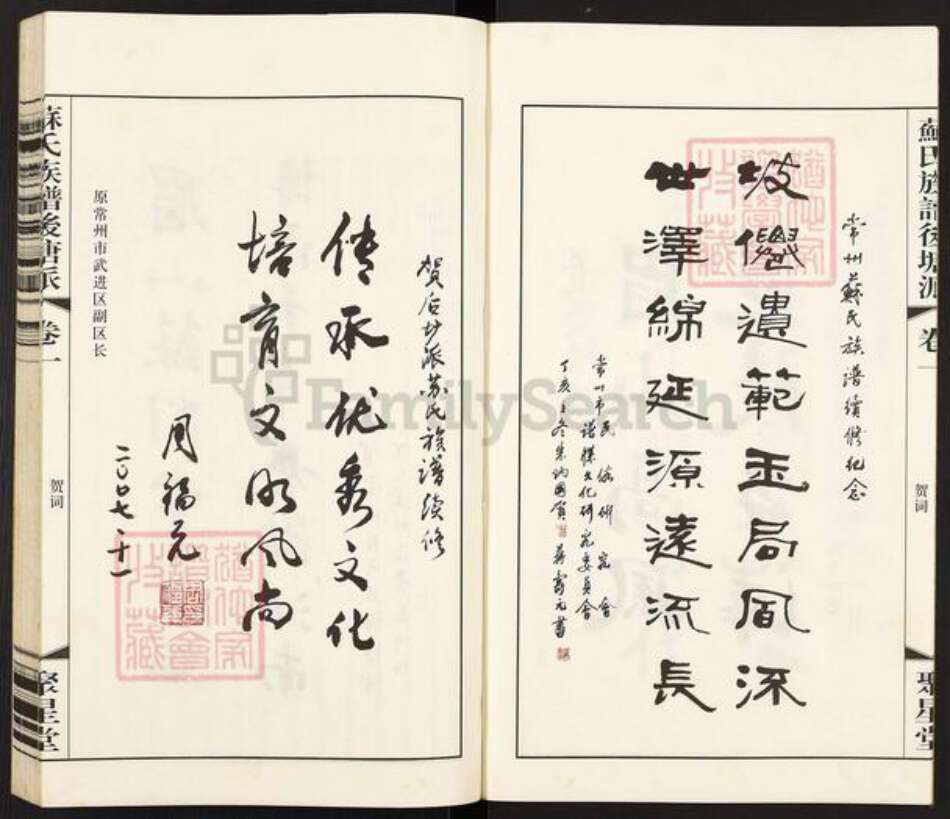 蘇氏族譜後塘派
卷一
贺词
聚星堂
常州蘇氏族谱續修纪念
坡僊遺範玉局風流
世澤綿延源遠流長
常州市民俗研究會
譜牒文化研究委員會
丁亥冬朱炳國賀
蔣壽元書
賀后塘派苏氏族谱续修
传承优秀文化
培育文明风尚
周福元
二〇〇七.十一
原常州市武进区副区长
蘇氏族譜後塘派
卷一
贺词
聚星堂
FamilySearch